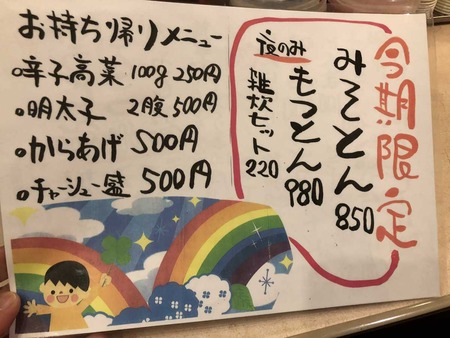 今期限定
みそとん 850
夜のみ
もつとん 980
雑炊セット 220
お持ち帰りメニュー
辛子高菜 100g 250円
明太子 2腹 500円
からあげ 500円
チャーシュー盛 500円